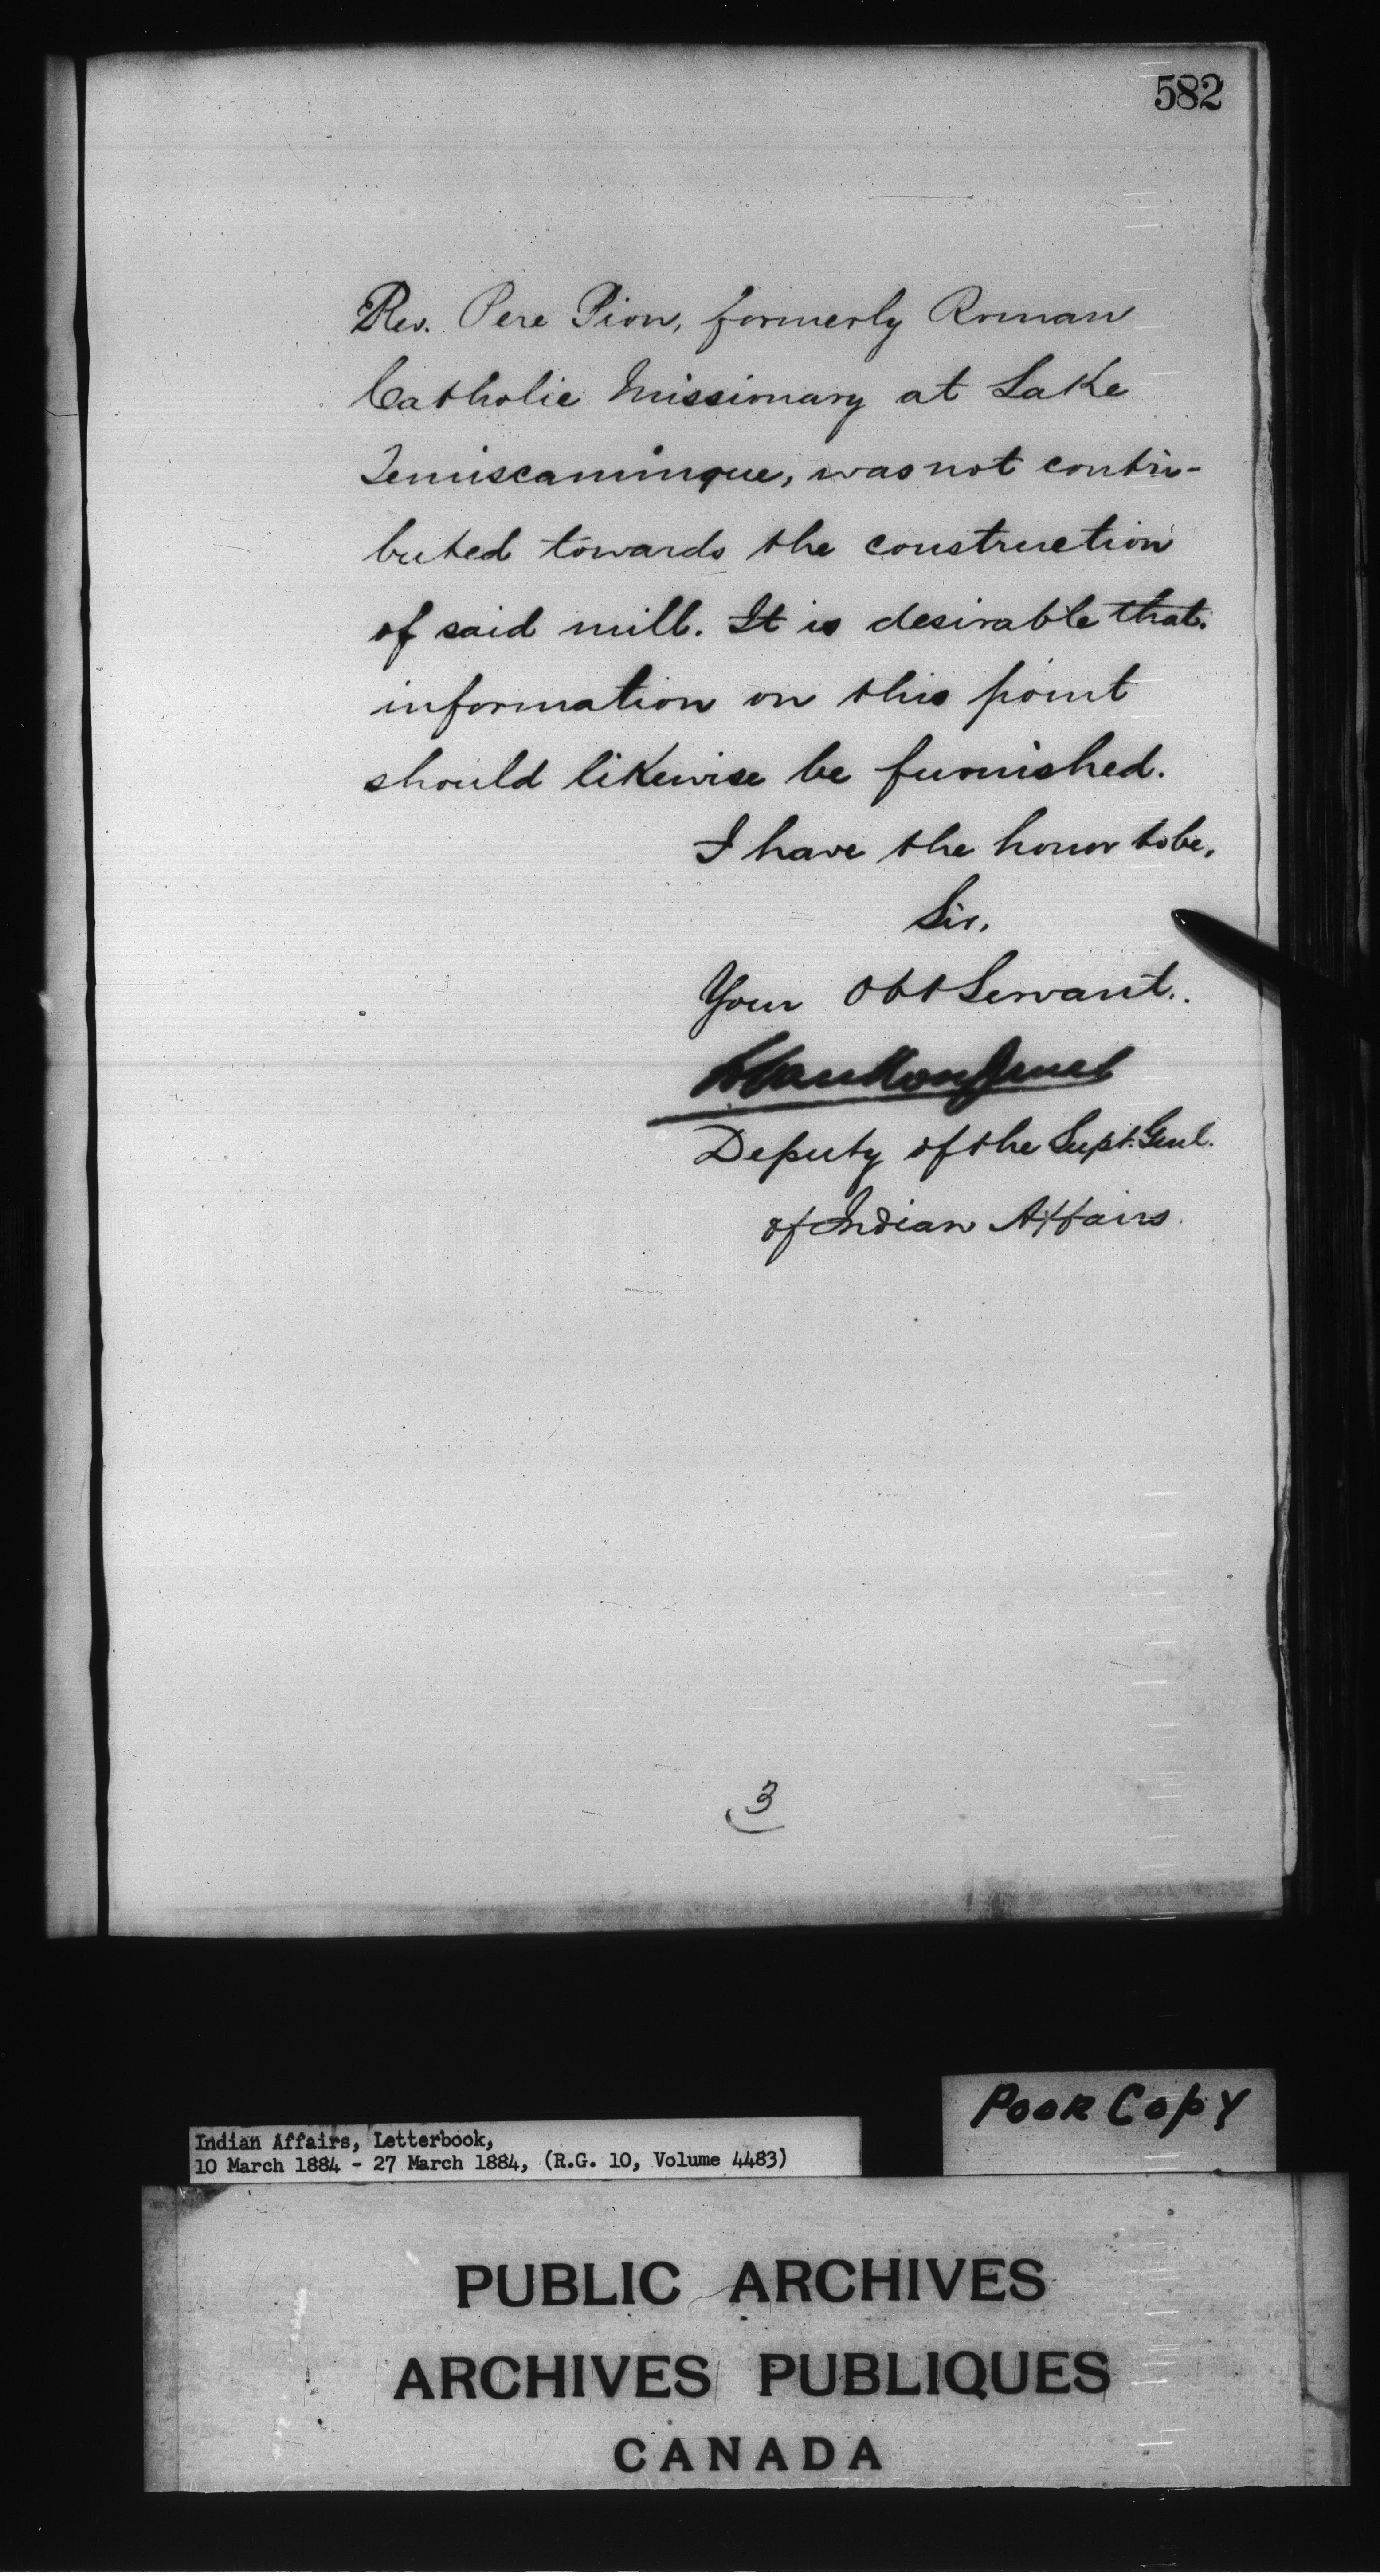 582
Rev. Pere Pion, formerly Roman
Catholic Missionary at Lake
Temiscamingue, was not contri-
buted towards the construction
of said mill. It is desirable that.
information on this point
should likewise be furnished.
I have the honor to be,
Sir,
Your Obt Servant.
Deputy of the Supt. Genl.
of Indian Affairs.
3
Poor Copy
Indian Affairs, Letterbook,
10 March 1884 - 27 March 1884, (R.G. 10, Volume 4483)
PUBLIC ARCHIVES
ARCHIVES PUBLIQUES
CANADA